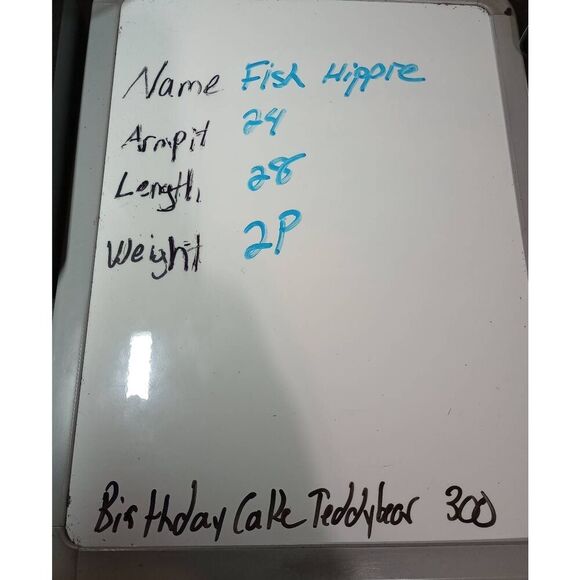 Name Fish Hippie
Armpit 24
Length 28
Weight 2P
Birthday Cake Teddybear 300